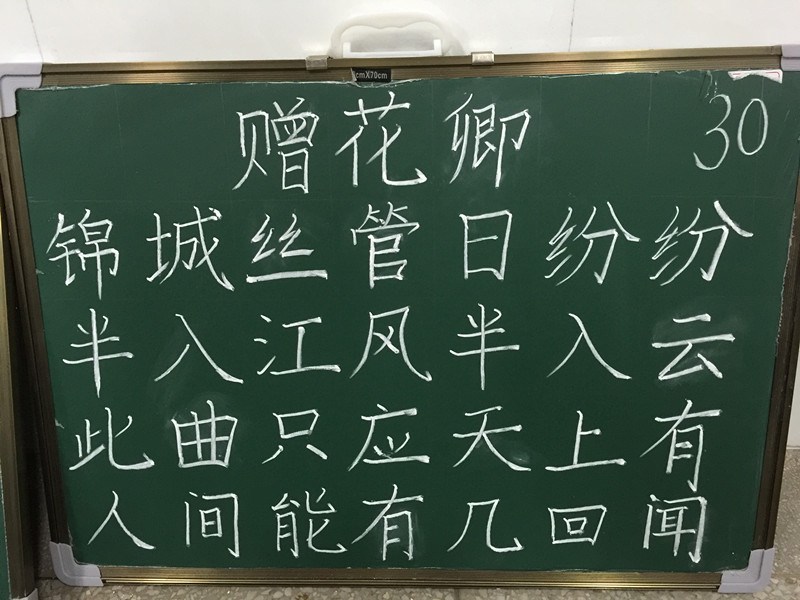 cmX70cm
赠花卿
30
锦城丝管日纷纷
半入江风半入云
此曲只应天上有
人间能有几回闻